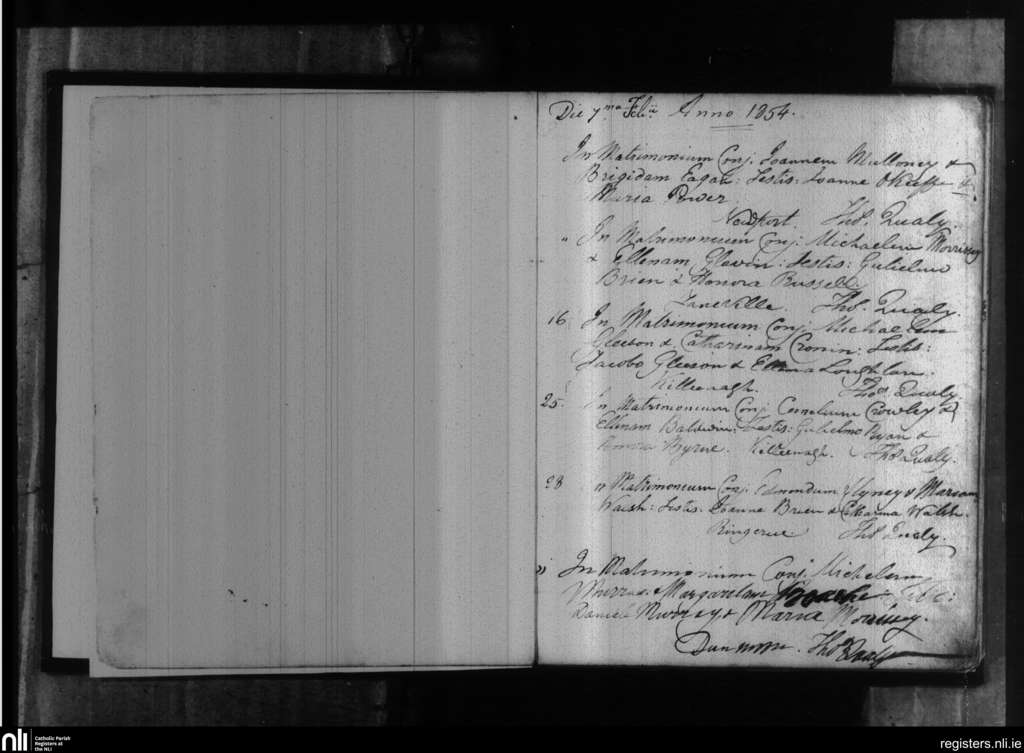 Die 7ma Febii Anno 1854.
In Matrimonium Conj. Joannem Mulloney &
Brigidam Eagan: Testis: Joanne OKeeffe &
Maria Power
Newport. Thos Qualy.
" In Matrimonium Conj. Michaelem Morrissey
& Ellenam Glavin: Testis: Gulielmo
Brien & Honora Russell.
Janeville. Thos Qualy.
16 In Matrimonium Conj. Michaelem
Gleeson & Catharinam Cronin: Testis:
Jacobo Gleeson & Ellena Loughlan.
Killeenagh. Thos Qualy.
25. In Matrimonium Conj. Cornelium Crowley &
Ellenam Baldwin: Testis: Gulielmo Ryan &
Honora Byrne. Killeenagh. Thos Qually.
28 In Matrimonium Conj. Edmondum Hyney & Mariam
Walsh: Testis: Joanne Brien & Catharina Walsh.
Ringcrue Thos Qualy.
" In Matrimonium Conj. Michelem
Murray & Margaretam Roache
Daniele Murrey & Maria Morrissey.
Dunmoon. Thos Qualy
nli Catholic Parish
Registers at
the NLI
registers.nli.ie